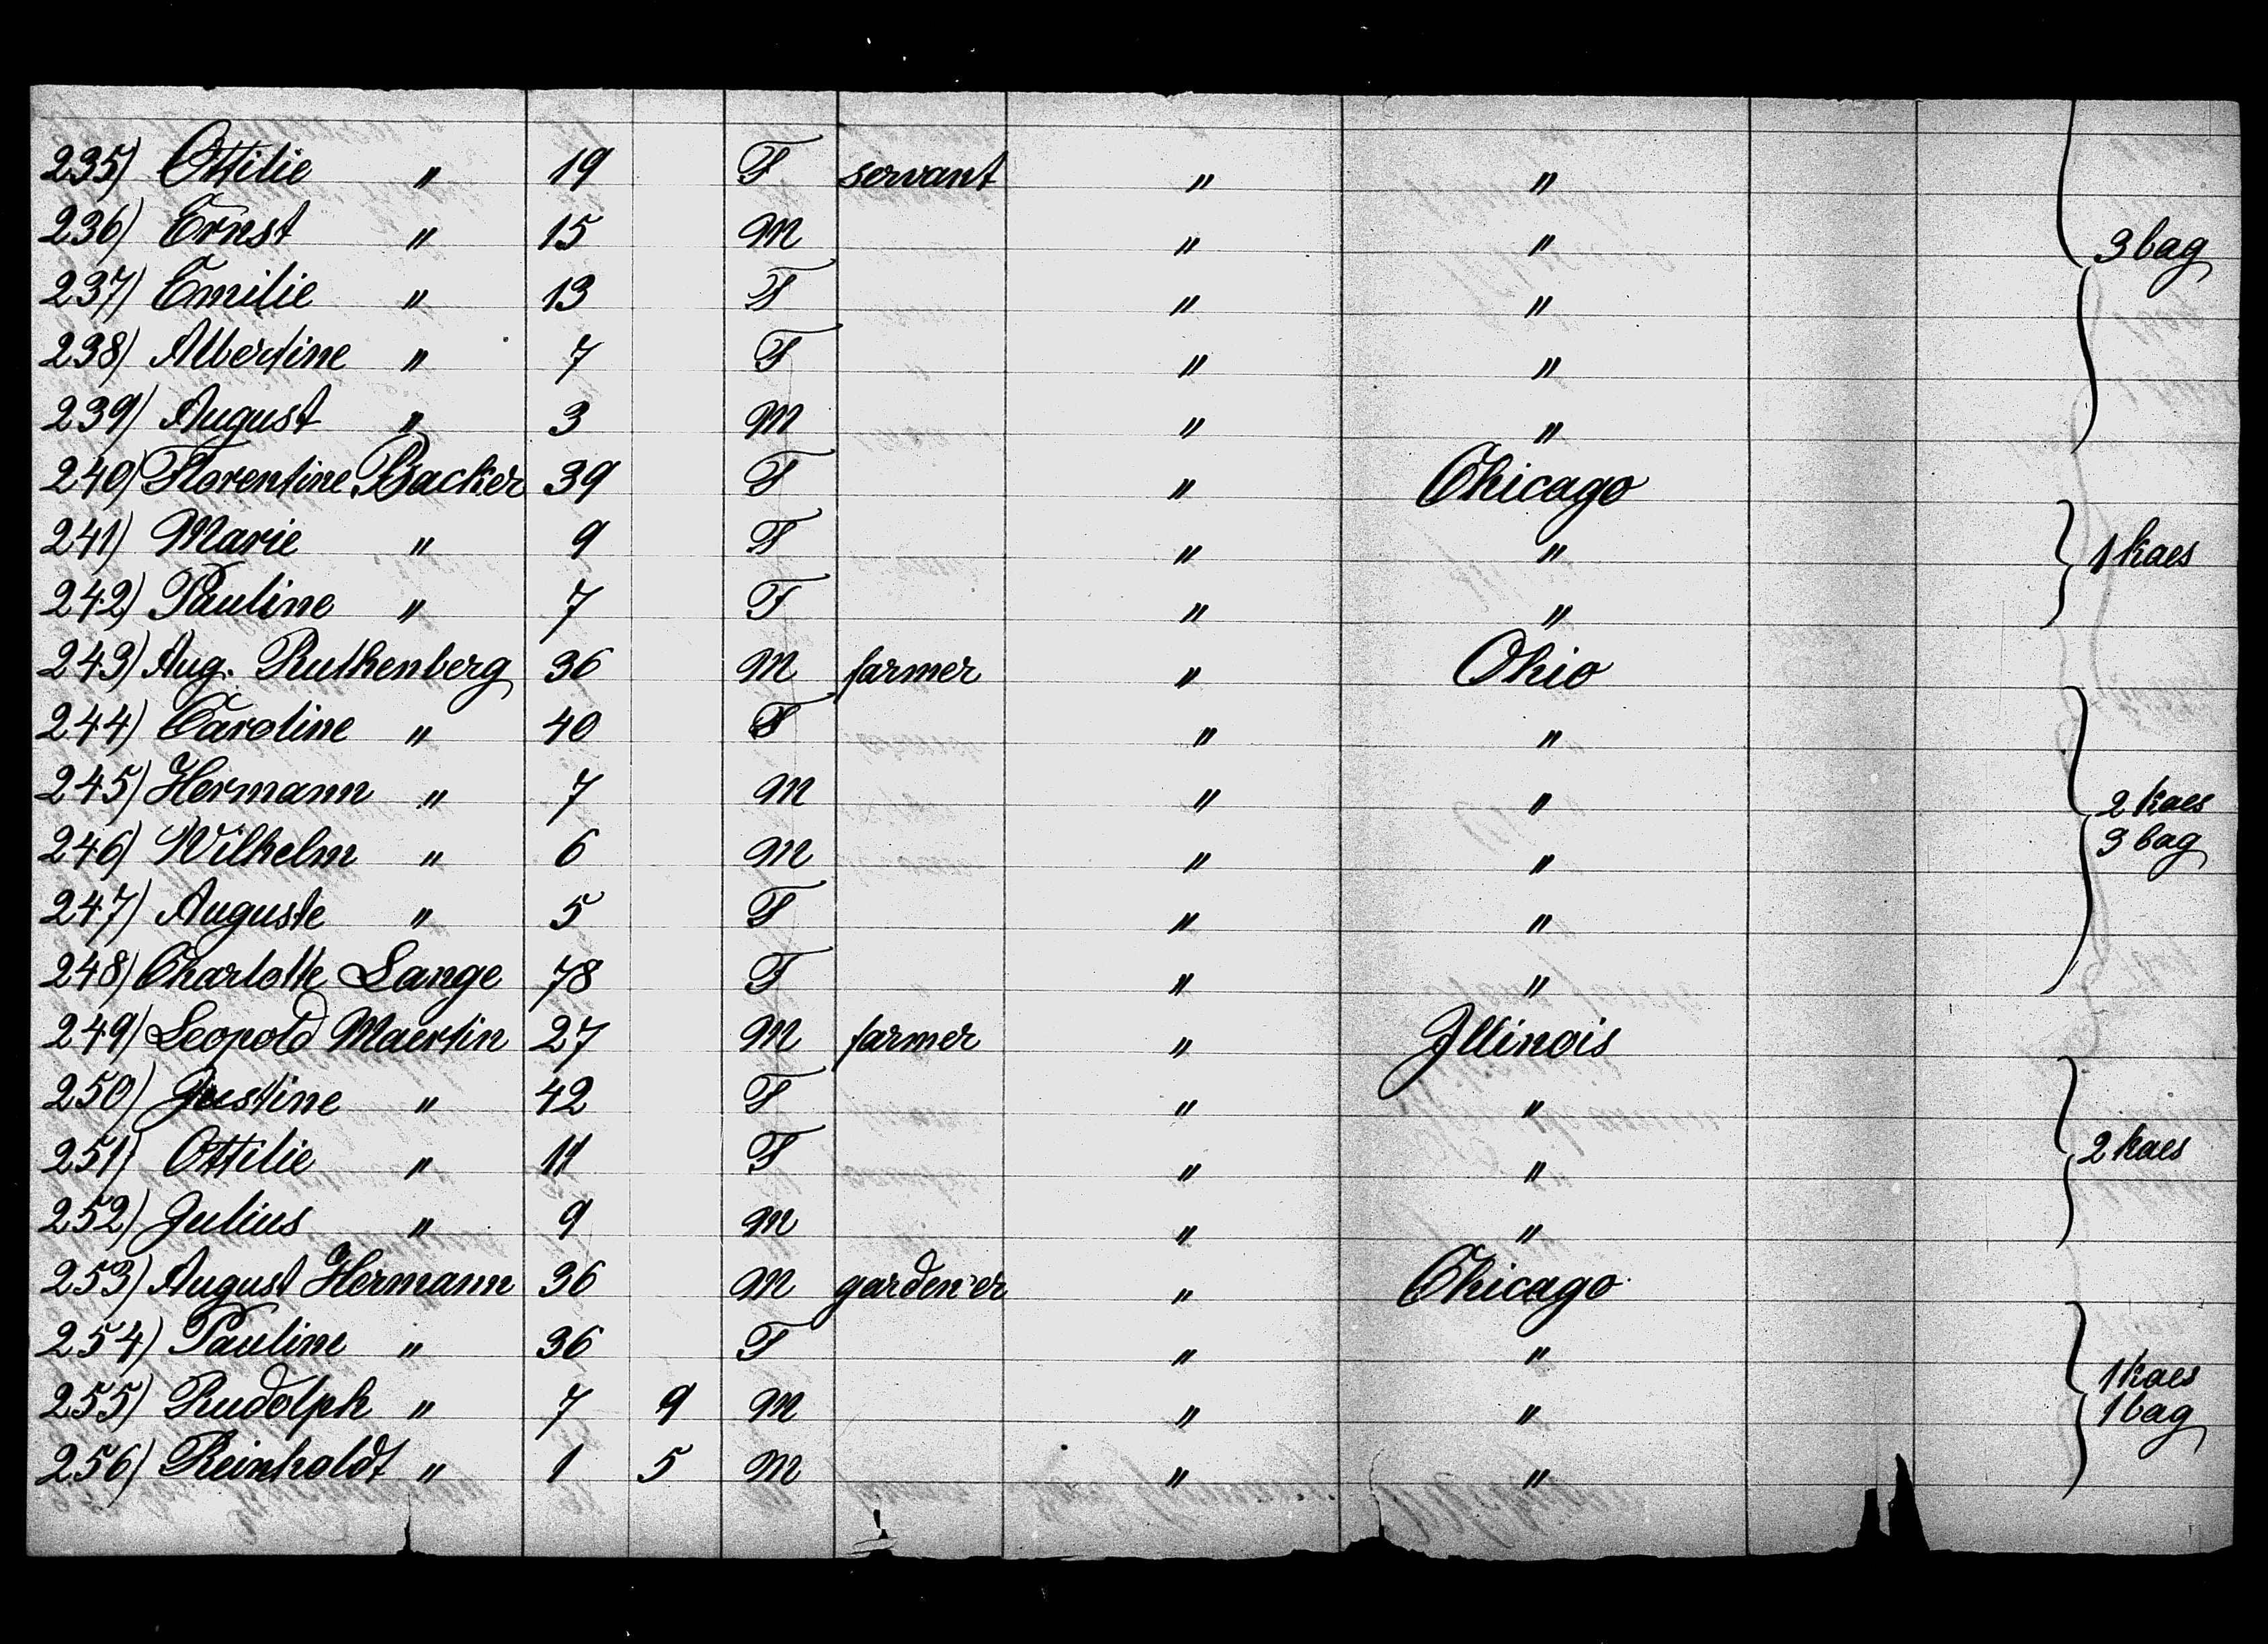 235) Ottilie " 19 F servant " "
236) Ernst " 15 M " " 3 bag
237) Emilie " 13 F " "
238) Albertine " 7 F " "
239) August " 3 M " "
240) Florentine Backer 39 F " Chicago
241) Marie " 9 F " " 1 kaes
242) Pauline " 7 F " "
243) Aug. Ruthenberg 36 M farmer " Ohio
244) Caroline " 40 F " "
245) Hermann " 7 M " " 2 kaes
246) Wilhelm " 6 M " " 3 bag
247) Auguste " 5 F " "
248) Charlotte Lange 78 F " "
249) Leopold Maertin 27 M farmer " Illinois
250) Justine " 42 F " "
251) Ottilie " 11 F " " 2 kaes
252) Julius " 9 M " "
253) August Hermann 36 M gardener " Chicago
254) Pauline " 36 F " "
255) Rudolph " 7 9 M " " 1 kaes 1 bag
256) Reinholdt " 1 5 M " "